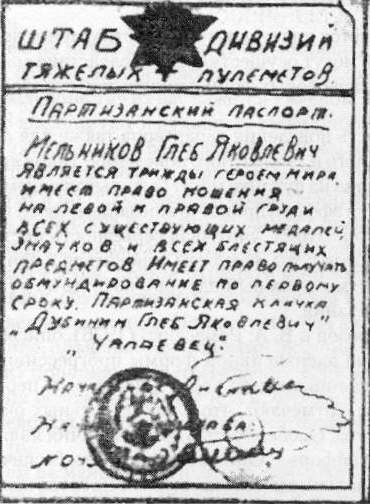 ШТАБ ДИВИЗИЙ
ТЯЖЕЛЫХ ПУЛЕМЕТОВ.
ПАРТИЗАНСКИЙ ПАСПОРТ.
МЕЛЬНИКОВ ГЛЕБ ЯКОВЛЕВИЧ
ЯВЛЯЕТСЯ ТРИЖДЫ ГЕРОЕМ МИРА
ИМЕЕТ ПРАВО НОШЕНИЯ
НА ЛЕВОЙ И ПРАВОЙ ГРУДИ
ВСЕХ СУЩЕСТВУЮЩИХ МЕДАЛЕЙ,
ЗНАЧКОВ И ВСЕХ БЛЕСТЯЩИХ
ПРЕДМЕТОВ ИМЕЕТ ПРАВО ПОЛУЧАТЬ
ОБМУНДИРОВАНИЕ ПО ПЕРВОМУ
СРОКУ. ПАРТИЗАНСКАЯ КЛИЧКА
"ДУБИНИН ГЛЕБ ЯКОВЛЕВИЧ"
"ЧАПАЕВЕЦ."